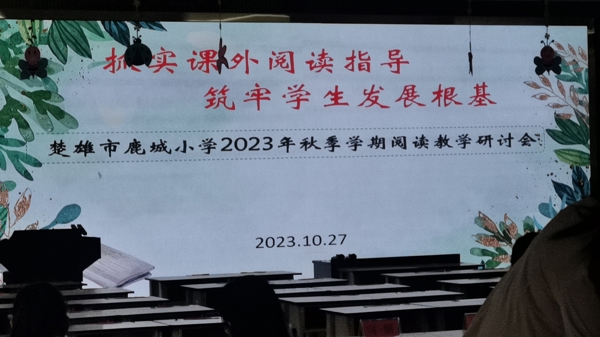 抓实课外阅读指导
筑牢学生发展根基
楚雄市鹿城小学2023年秋季学期阅读教学研讨会
2023.10.27